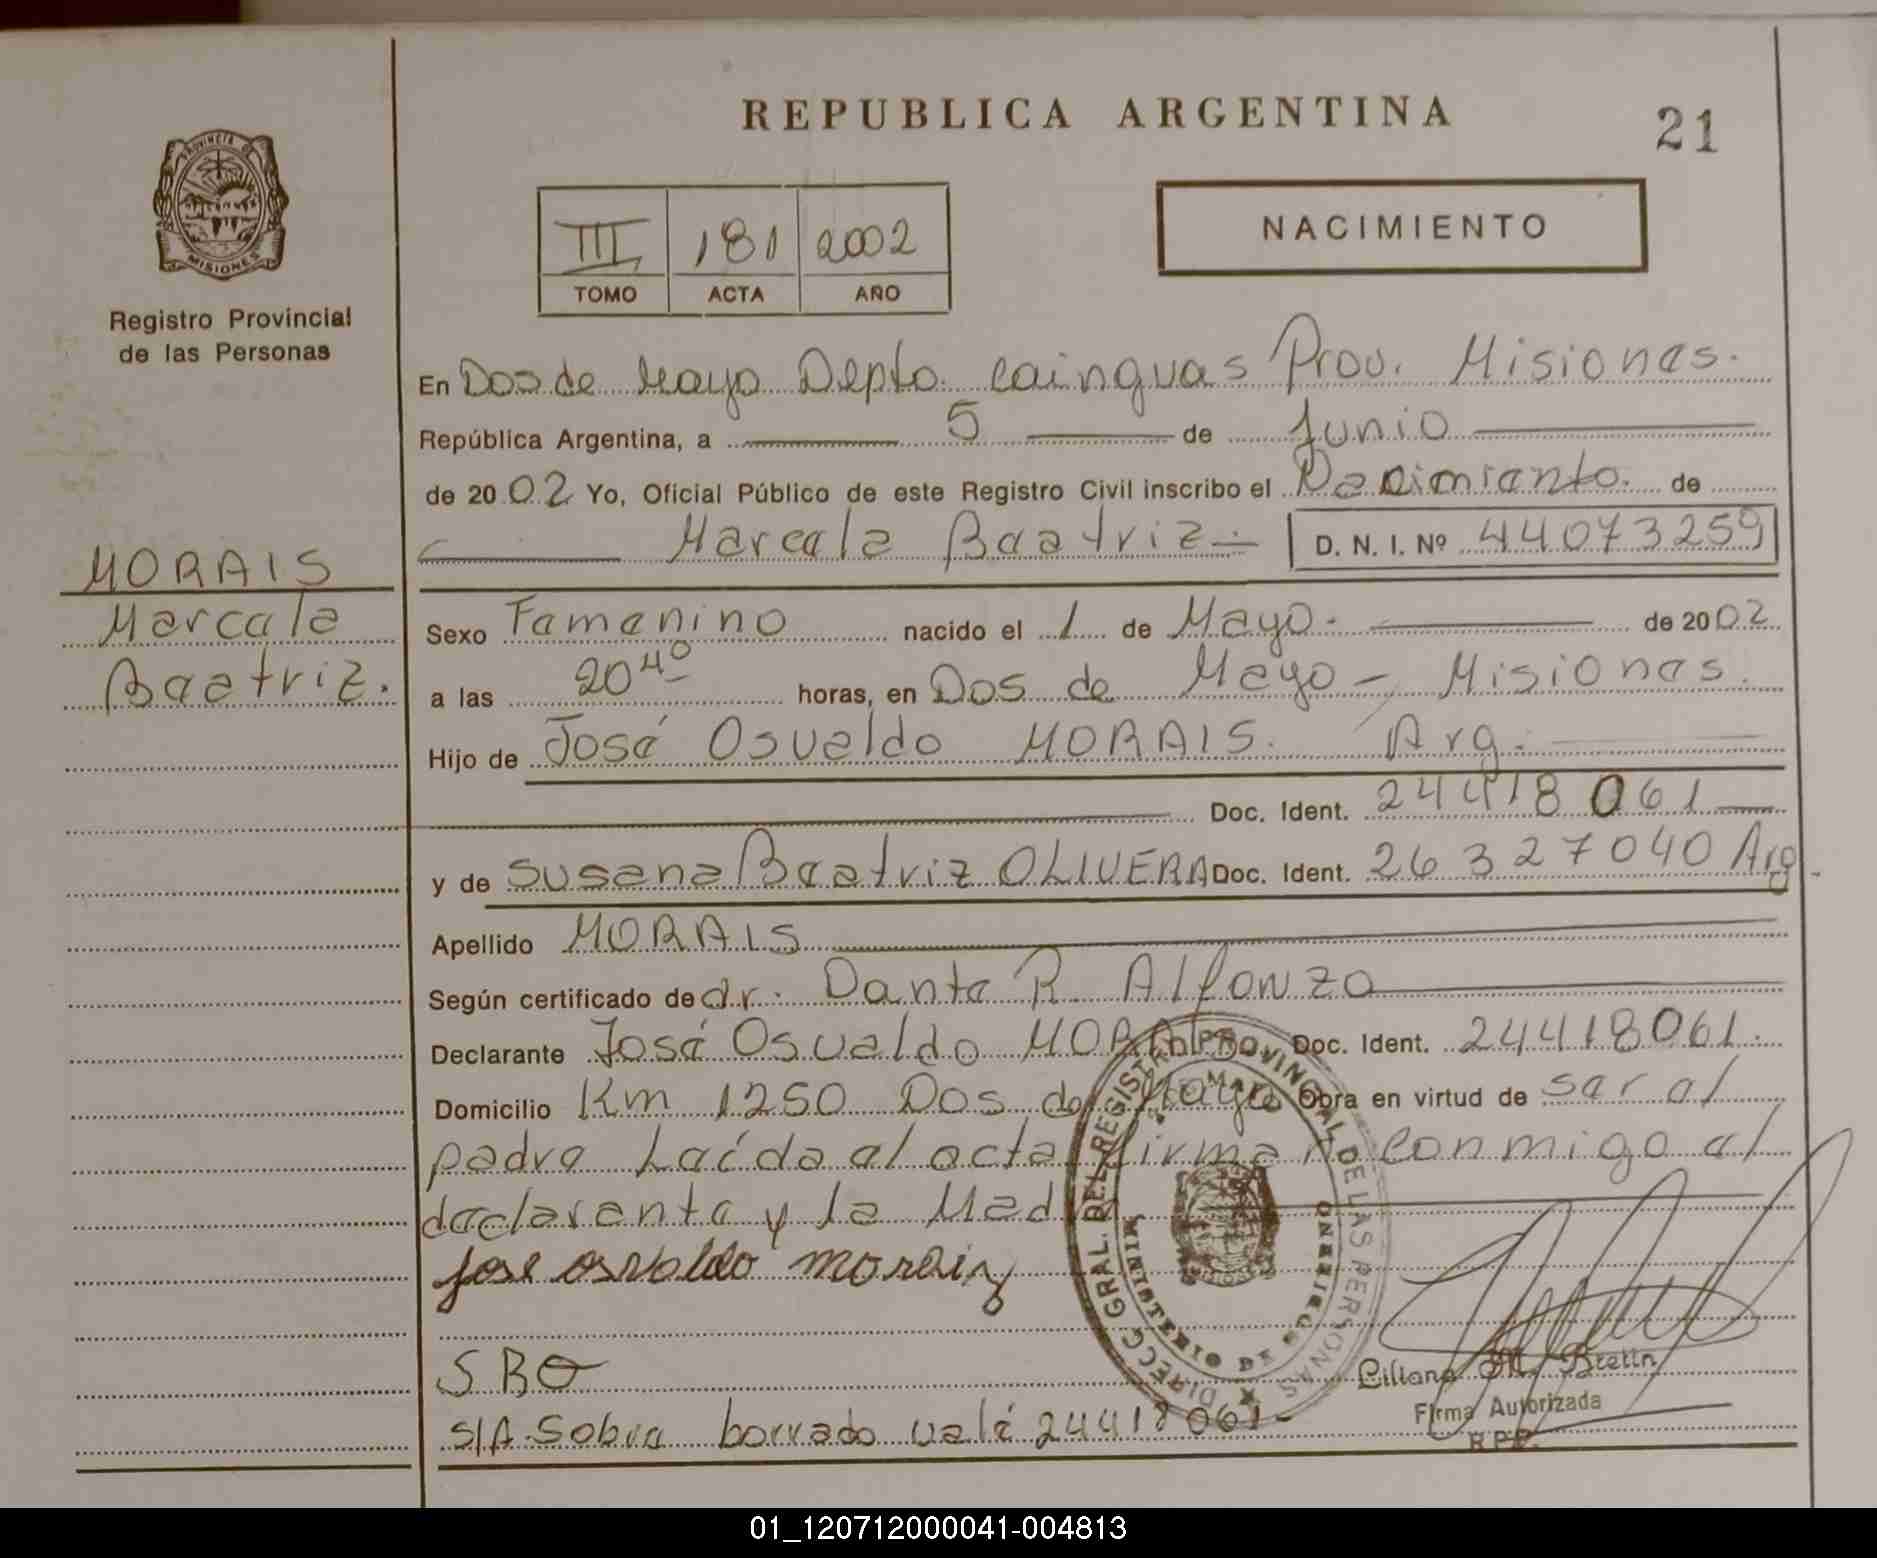 REPUBLICA ARGENTINA
21
PROVINCIA DE
MISIONES
Registro Provincial
de las Personas
III 181 2002
TOMO ACTA AÑO
NACIMIENTO
En Dos de Mayo Depto. Cainguas Prov. Misiones.
República Argentina, a 5 de Junio
de 2002 Yo, Oficial Público de este Registro Civil inscribo el Nacimiento. de
Marcela Beatriz.- D. N. I. Nº 44073259
MORAIS
Marcela
Beatriz.
Sexo Femenino nacido el 1 de Mayo. de 2002
a las 20 40 horas, en Dos de Mayo - Misiones.
Hijo de José Osvaldo MORAIS. Arg.
Doc. Ident. 24418061
y de Susana Beatriz OLIVERA Doc. Ident. 26327040 Arg.
Apellido MORAIS
Según certificado de dr. Dante R. Alfonzo
Declarante José Osvaldo MORAIS Doc. Ident. 24418061.
Domicilio Km 1250 Dos de Mayo Obra en virtud de ser el
padre Leída el acta firman conmigo el
declarante y la Madre
jose osvaldo morais
SBO
S/A. Sobre borrado vale 24418061-
DIRECC GRAL. DEL REGISTRO PROVINCIAL DE LAS PERSONAS
MINISTERIO DE GOBIERNO
Liliana M. Bretin
Firma Autorizada
R.P.P.
01_120712000041-004813